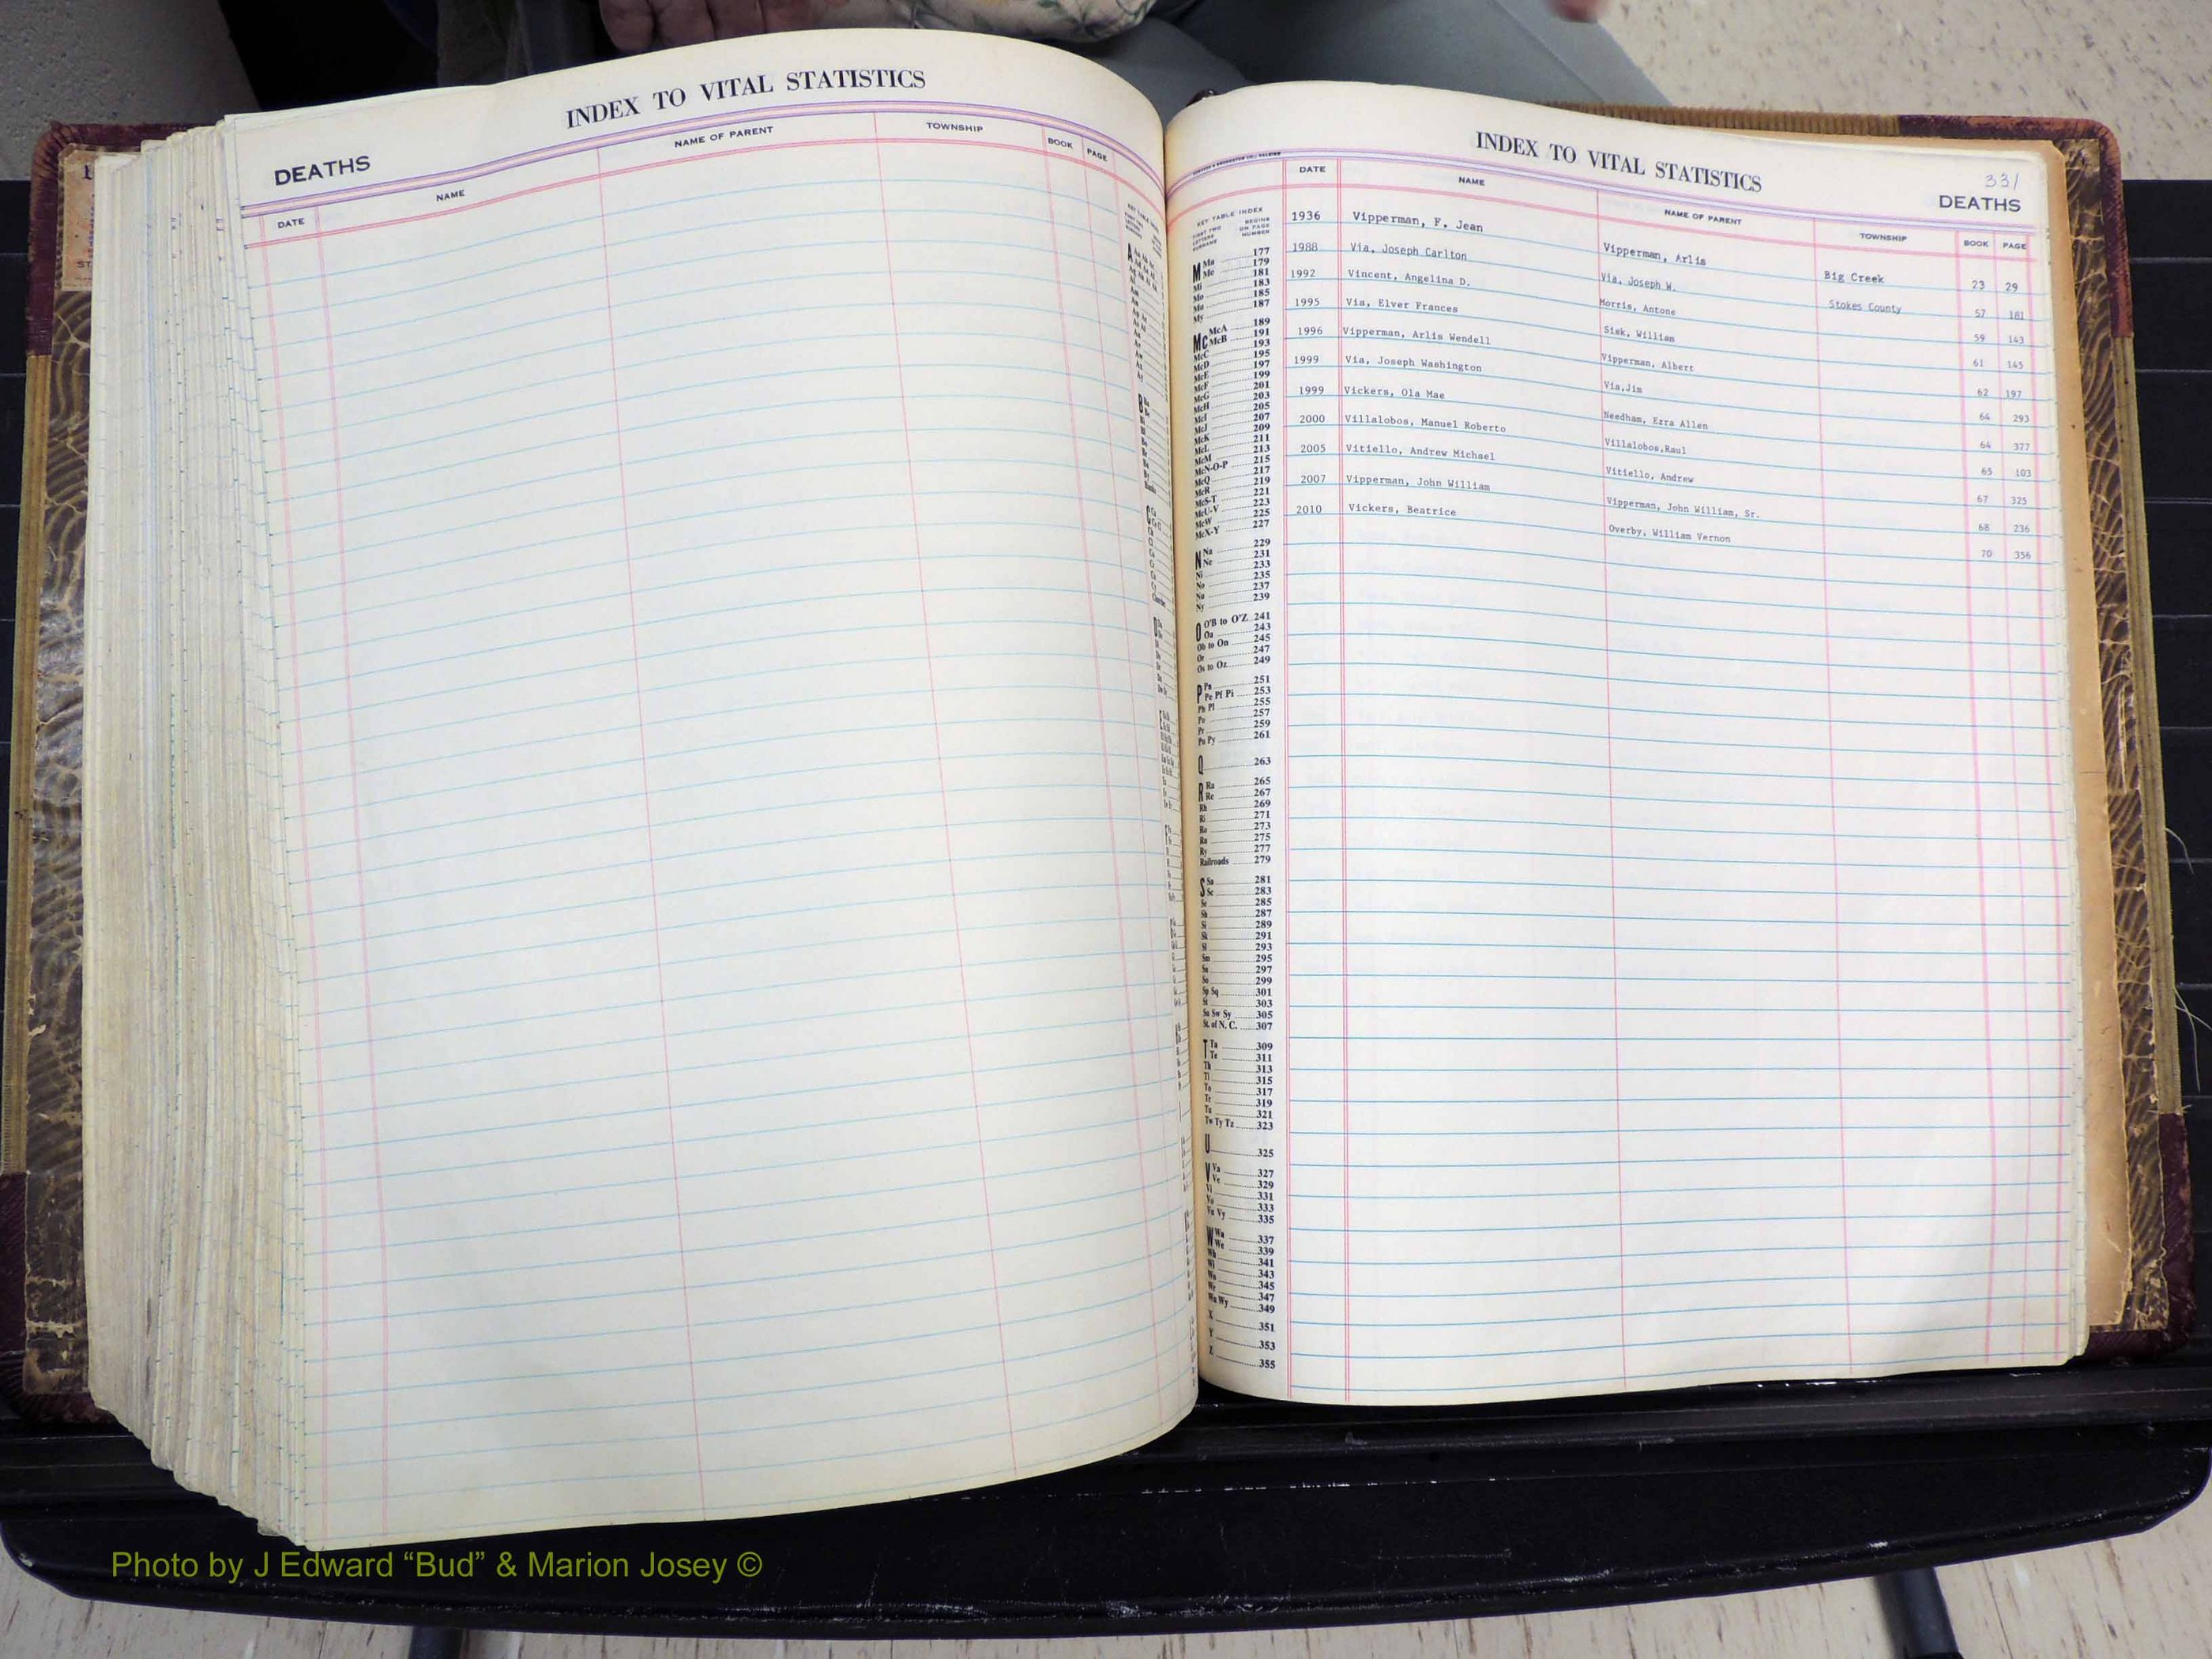 INDEX TO VITAL STATISTICS
DEATHS
DATE NAME NAME OF PARENT TOWNSHIP BOOK PAGE
INDEX TO VITAL STATISTICS
331
DEATHS
DATE NAME NAME OF PARENT TOWNSHIP BOOK PAGE
1936 Vipperman, F. Jean Vipperman, Arlis Big Creek 23 29
1988 Via, Joseph Carlton Via, Joseph W. Stokes County 57 181
1992 Vincent, Angelina D. Morris, Antone 59 143
1995 Via, Elver Frances Sisk, William 61 145
1996 Vipperman, Arlis Wendell Vipperman, Albert 62 197
1999 Via, Joseph Washington Via,Jim 64 293
1999 Vickers, Ola Mae Needham, Ezra Allen 64 377
2000 Villalobos, Manuel Roberto Villalobos,Raul 65 103
2005 Vitiello, Andrew Michael Vitiello, Andrew 67 325
2007 Vipperman, John William Vipperman, John William, Sr. 68 236
2010 Vickers, Beatrice Overby, William Vernon 70 356
KEY TABLE INDEX
FIRST TWO LETTERS SURNAME BEGINS ON PAGE NUMBER
M Ma 177
Me 179
Mi 181
Mo 183
185
My 187
Mc McA 189
McB 191
McC 193
McD 195
McE 197
McF 199
McG 201
McH 203
McI 205
McJ 207
McK 209
McL 211
McM 213
McN-O-P 215
McQ 217
McR 219
McS-T 221
McU-V 223
McW 225
McX-Y 227
N Na 229
Ne 231
Ni 233
No 235
Nu 237
Ny 239
O O'B to O'Z 241
Oa 243
Ob to On 245
Or 247
Os to Oz 249
P Pa 251
Pe Pf Pi 253
Ph Pl 255
Po 257
Pr 259
Pu Py 261
Q 263
R Ra 265
Re 267
Rh 269
Ri 271
Ro 273
Ru 275
Ry 277
Railroads 279
S Sa 281
Sc 283
Se 285
Sh 287
Si 289
Sk 291
Sl 293
Sm 295
Sn 297
So 299
Sp Sq 301
St 303
Su Sw Sy 305
St. of N. C. 307
T Ta 309
Te 311
Th 313
Ti 315
To 317
Tr 319
Tu 321
Tw Ty Tz 323
U 325
V Va 327
Ve 329
Vi 331
Vo 333
Vu Vy 335
W Wa 337
We 339
Wh 341
Wi 343
Wo 345
Wr 347
Wu Wy 349
X 351
Y 353
Z 355
Photo by J Edward “Bud” & Marion Josey ©